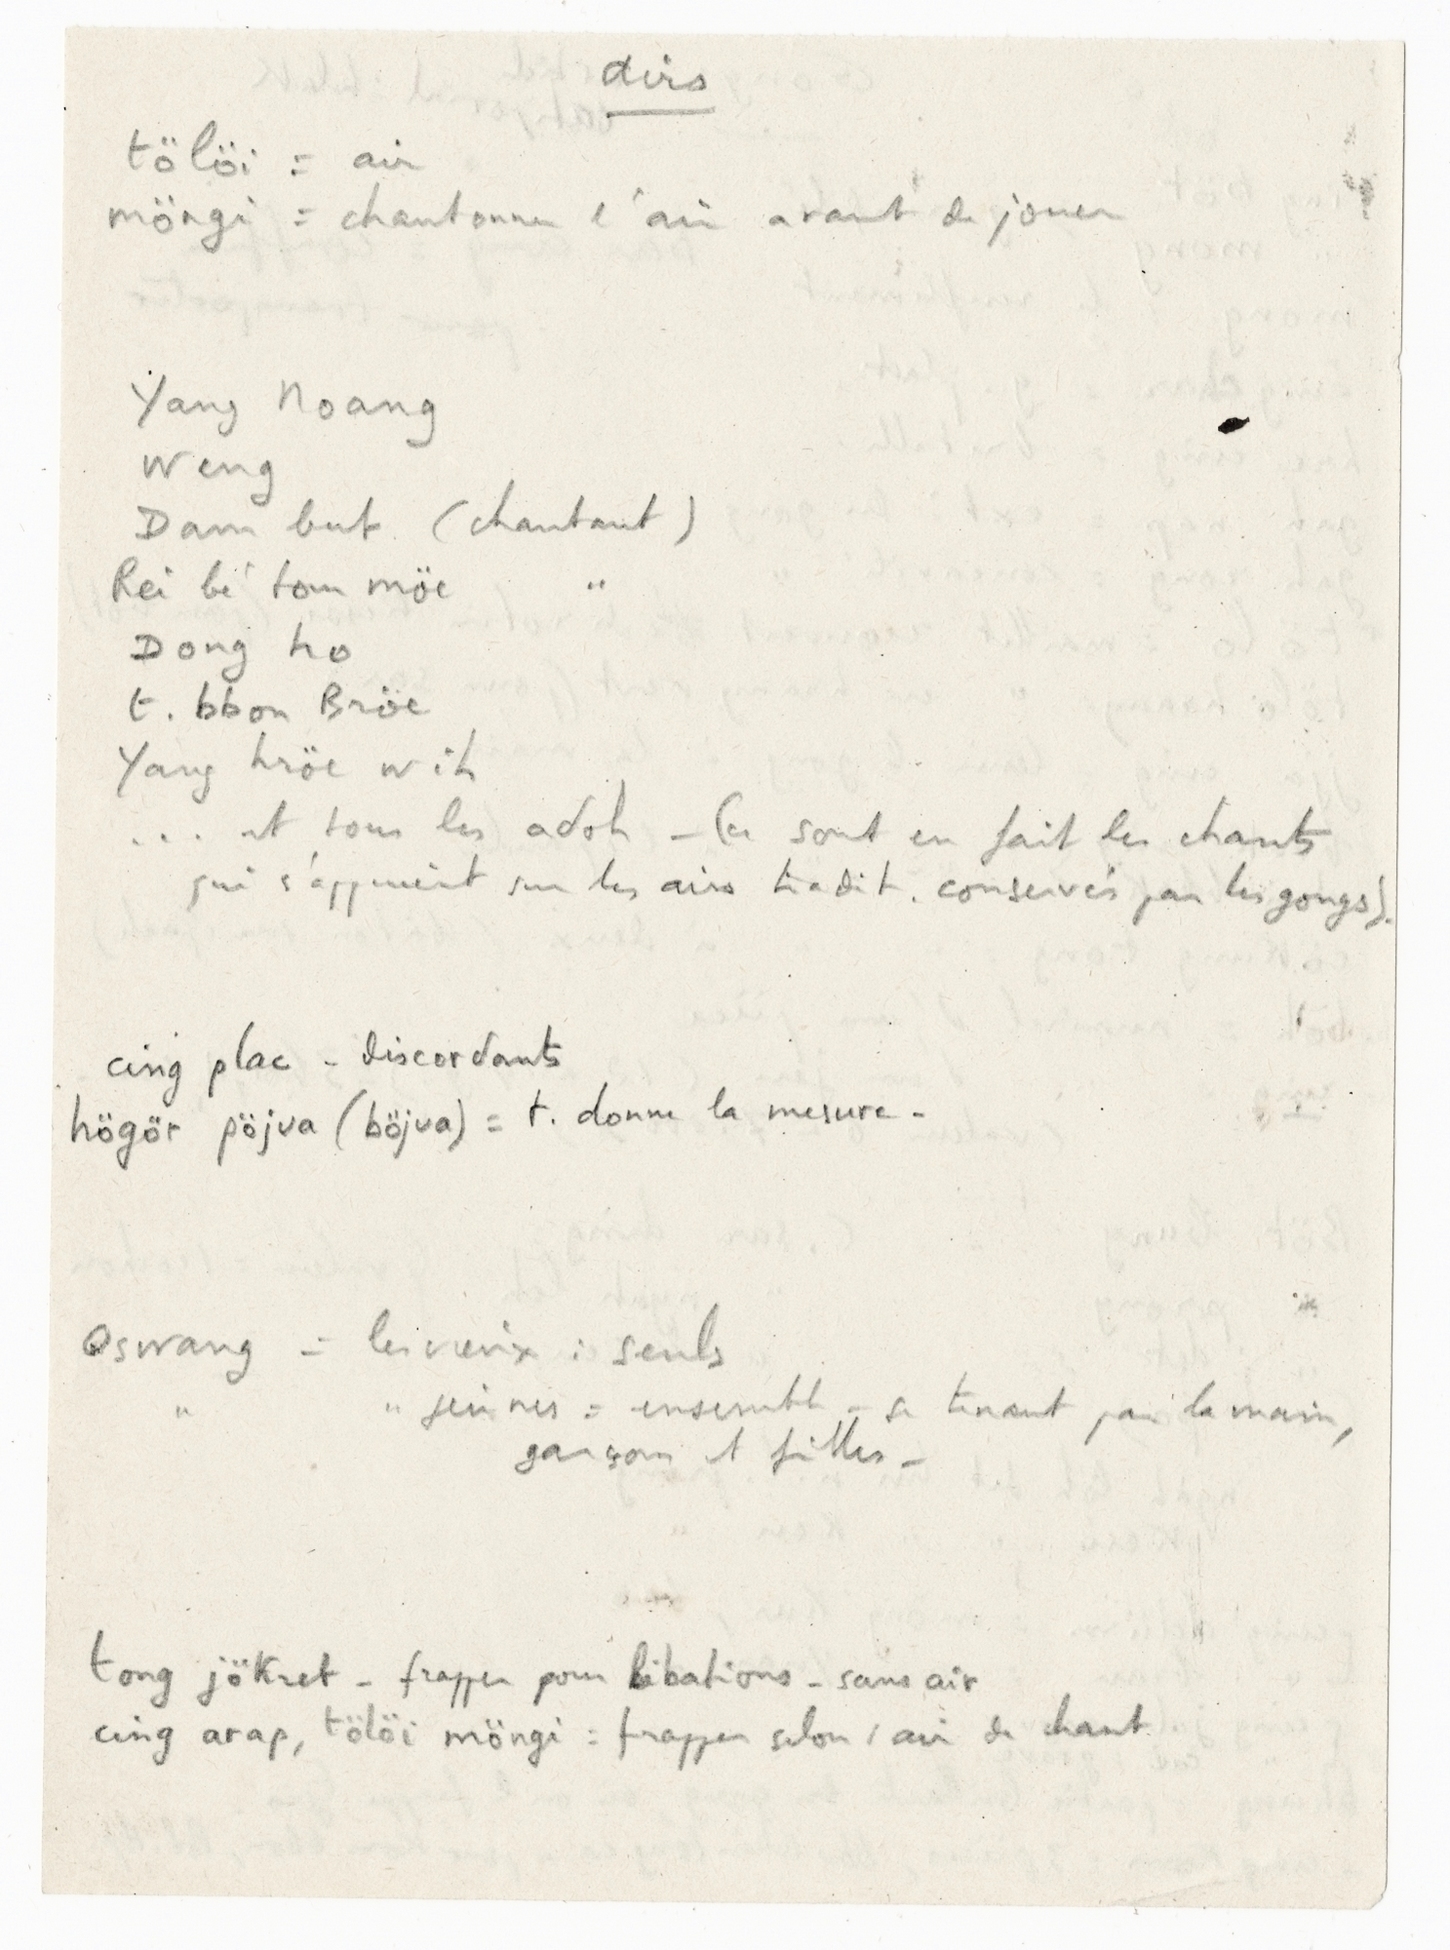 airs
tölöi = air
möngi = chantonner l'air avant de jouer
Yang Noang
Weng
Dam but (chantant)
Rei bé tom möe "
Dong ho
t. bbon Bröe
Yang hröe wih
... et tous les adoh - (ce sont en fait les chants
qui s'appuient sur les airs tradit. conservés par les gongs).
cing plac - discordants
högör pöjva (böjva) = t. donne la mesure -
oswang = les vieux : seuls
" " jeunes = ensemble - se tenant par la main,
garçons et filles -
tong jökret - frapper pour libations - sans air
cing arap, tölöi möngi = frapper selon l'air de chant.